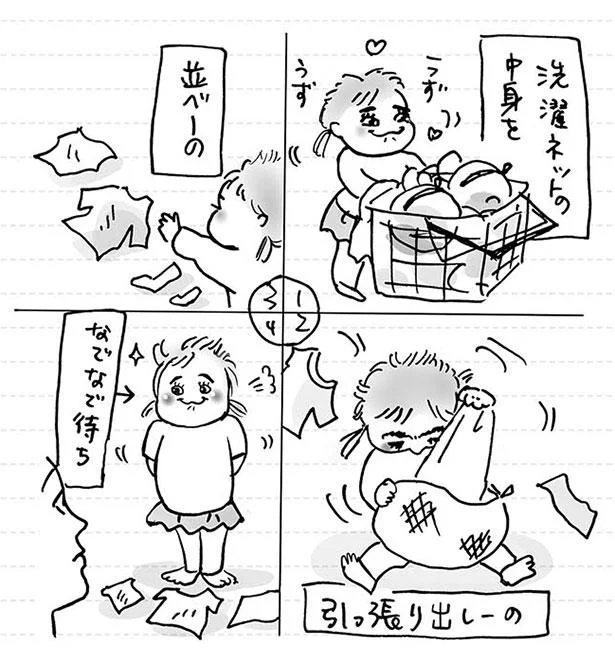 洗濯ネットの
中身を
うず
うず
引っ張り出しーの
並べーの
なでなで待ち
1
2
3
4